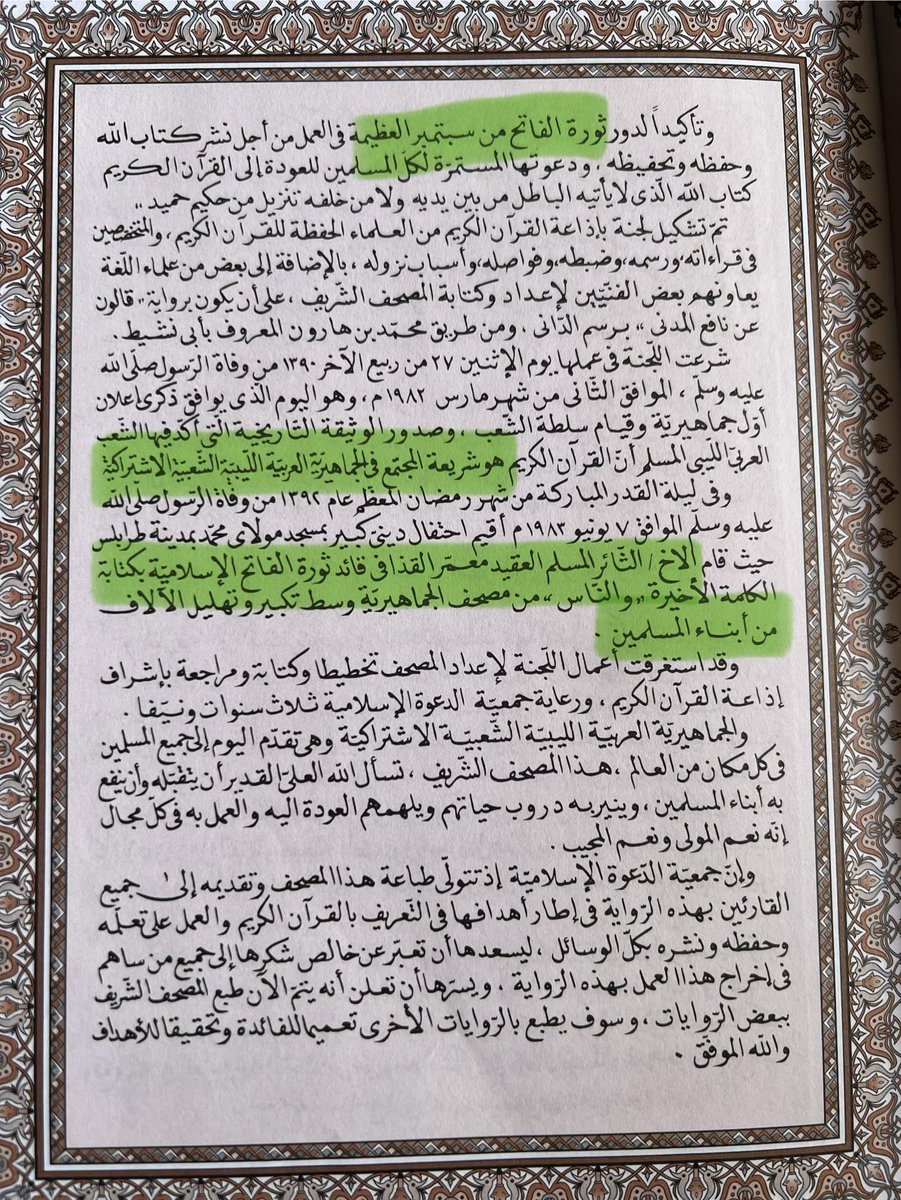 وتأكيداً لدور ثورة الفاتح من سبتمبر العظيمة في العمل من أجل نشر كتاب الله
وحفظه وتحفيظه، ودعوتها المستمرّة لكلّ المسلمين للعودة إلى القرآن الكريم
كتاب الله الّذي لا يأتيه الباطل من بين يديه ولا من خلفه تنزيل من حكيم حميد"
تمّ تشكيل لجنة بإذاعة القرآن الكريم من العلماء الحفظة للقرآن الكريم، والمتخصّصين
في قراءاته، ورسمه، وضبطه، وفواصله، وأسباب نزوله، بالإضافة إلى بعض من علماء اللّغة
يعاونهم بعض الفنّيّين لإعداد وكتابة المصحف الشّريف، على أن يكون برواية "قالون
عن نافع المدني" برسم الدّاني، ومن طريق محمّد بن هارون المعروف بأبي نشيط.
شرعت اللّجنة في عملها يوم الإثنين ٢٧ من ربيع الآخر ١٣٩٠ من وفاة الرّسول صلّى الله
عليه وسلّم، الموافق الثّاني من شهر مارس ١٩٨٢ م، وهو اليوم الّذي يوافق ذكرى إعلان
أوّل جماهيريّة وقيام سلطة الشّعب، وصدور الوثيقة التّاريخية الّتي أكّد فيها الشّعب
العربيّ اللّيبي المسلم أنّ القرآن الكريم هو شريعة المجتمع في الجماهيريّة العربيّة اللّيبيّة الشّعبيّة الاشتراكيّة
وفي ليلة القدر المباركة من شهر رمضان المعظّم عام ١٣٩٢ من وفاة الرّسول صلّى الله
عليه وسلّم الموافق ٧ يونيو ١٩٨٣ م أقيم احتفال دينيّ كبير بمسجد مولاي محمّد بمدينة طرابلس
حيث قام الاخ / الثّائر المسلم العقيد معمّر القذافي قائد ثورة الفاتح الإسلاميّة بكتابة
الكلمة الأخيرة "والنّاس" من مصحف الجماهيريّة وسط تكبير وتهليل الآلاف
من أبناء المسلمين.
وقد استغرقت أعمال اللّجنة لإعداد المصحف تخطيطا وكتابة ومراجعة بإشراف
إذاعة القرآن الكريم، ورعاية جمعيّة الدعوة الإسلامية ثلاث سنوات ونيّفا.
والجماهيريّة العربيّة الليبيّة الشّعبيّة الاشتراكيّة وهي تقدّم اليوم إلى جميع المسلمين
في كلّ مكان من العالم، هذا المصحف الشّريف، تسأل الله العليّ القدير أن يتقبّله وأن ينفع
به أبناء المسلمين، وينير به دروب حياتهم ويلهمهم العودة اليه والعمل به في كلّ مجال
إنّه نعم المولى ونعم المجيب.
وإنّ جمعيّة الدّعوة الإسلاميّة إذ تتولّى طباعة هذا المصحف وتقديمه إلى جميع
القارئين بهذه الرّواية في إطار أهدافها في التّعريف بالقرآن الكريم والعمل على تعلّمه
وحفظه ونشره بكلّ الوسائل، ليسعدها أن تعبّر عن خالص شكرها إلى جميع من ساهم
في إخراج هذا العمل بهذه الرّواية. ويسرّها أن تعلن أنه يتمّ الآن طبع المصحف الشّريف
ببعض الرّوايات، وسوف يطبع بالرّوايات الأخرى تعميما للفائدة وتحقيقا للأهداف
والله الموفّق.